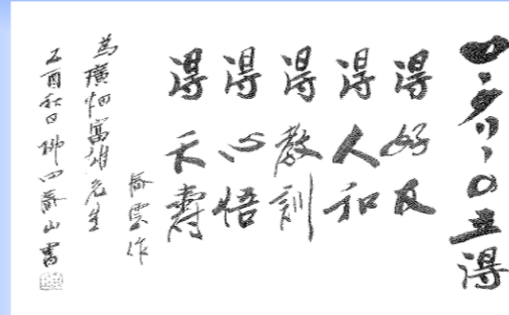 ロータリーの五得
得好友
得人和
得教訓
得心悟
得天壽
雲作
為廣畑富雄先生
乙酉秋日 山書